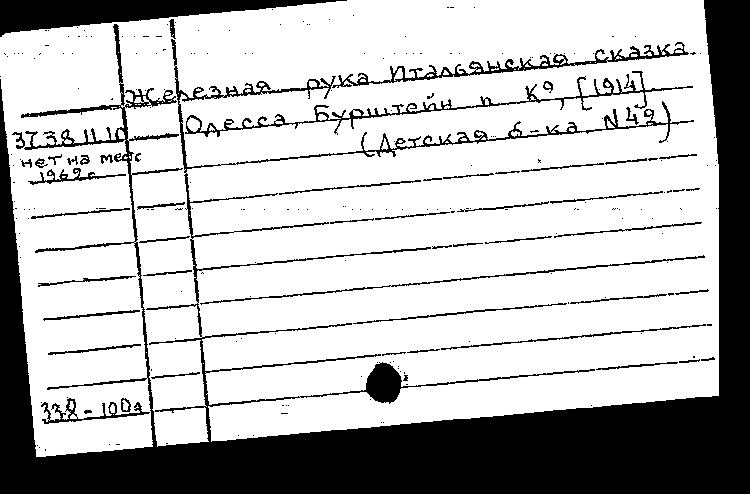 Железная рука Итальянская сказка
Одесса, Бурштейн и К⁰, [1914]
(Детская б-ка N 42)
37 38 11 10
нет на месте
1962 г
338 - 100а